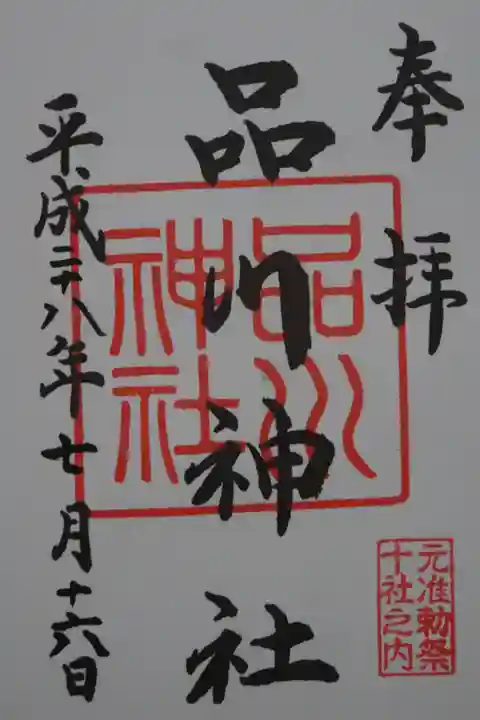 奉拝
品川神社
品川
神社
平成二十八年七月十六日
元准勅祭
十社之内